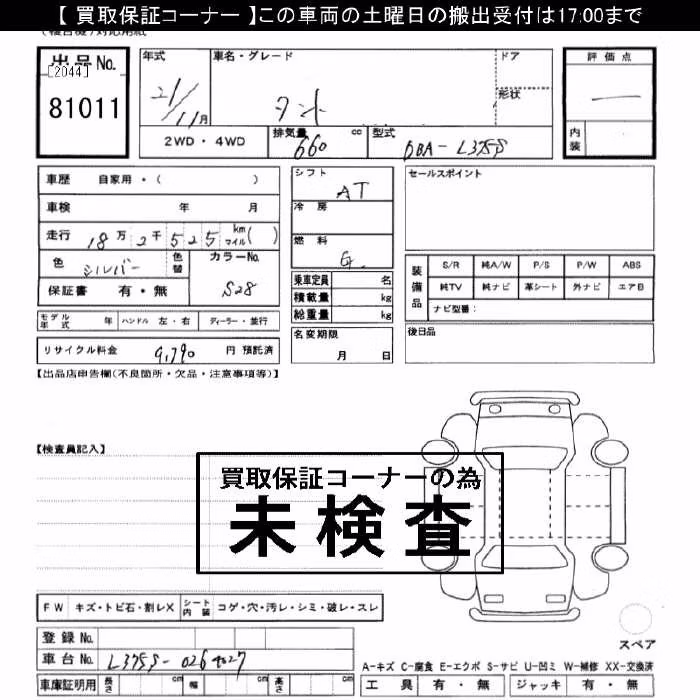 【 買取保証コーナー 】この車両の土曜日の搬出受付は17:00まで
出品No.
[2044]
81011
年式
21/11月
車名・グレード
タント
ドア
形状
評価点
内装
2WD・4WD
排気量 660 cc
型式 DBA-L375S
車歴 自家用・( )
車検 年 月
走行 18万2千525 km マイル( )
色 シルバー 色替
カラーNo. S28
保証書 有・無
シフト AT
冷房
燃料 G
乗車定員 名
積載量 kg
総重量 kg
セールスポイント
装備品
S/R 純A/W P/S P/W ABS
純TV 純ナビ 革シート 外ナビ エアB
ナビ型番:
モデル年式 年 ハンドル 左・右 ディーラー・並行
名変期限 月 日
後日品
リサイクル料金 9,790 円 預託済
【出品店申告欄(不良箇所・欠品・注意事項等)】
【検査員記入】
買取保証コーナーの為
未検査
FW キズ・トビ石・割レX シート内装 コゲ・穴・汚レ・シミ・破レ・スレ
登録No.
車台No. L375S-0264027
車庫証明用 長さ cm 幅 cm 高さ cm
スペア
A-キズ C-腐食 E-エクボ S-サビ U-凹ミ W-補修 XX-交換済
工具 有・無 ジャッキ 有・無